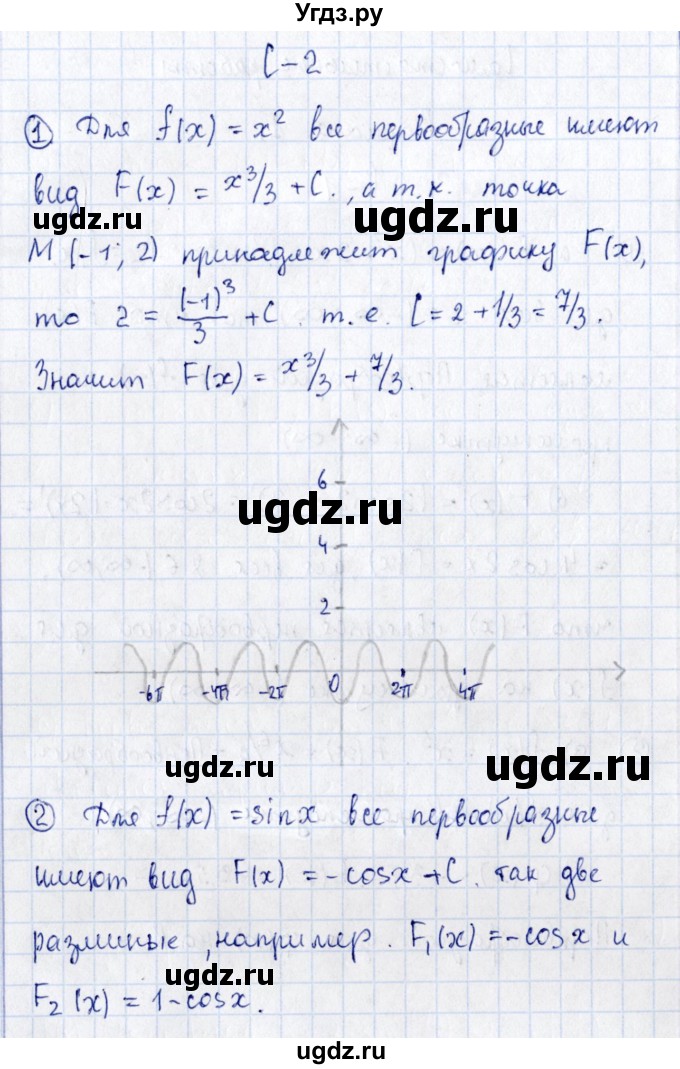 Угдз.ру
С-2
① Для f(x) = x² все первообразные имеют
вид F(x) = x³/3 + C., а т.к. точка
M (-1; 2) принадлежит графику F(x),
то 2 = (-1)³/3 + C. т.е. C = 2 + 1/3 = 7/3.
Значит F(x) = x³/3 + 7/3.
6
ugdz.ru
4
2
-6π -4π -2π 0 2π 4π
ugdz.ru ugdz.ru
② Для f(x) = sinx все первообразные
имеют вид F(x) = -cosx + C. так две
различные, например. F₁(x) = -cosx и
ugdz.ru
F₂(x) = 1-cosx.
ugdz.ru